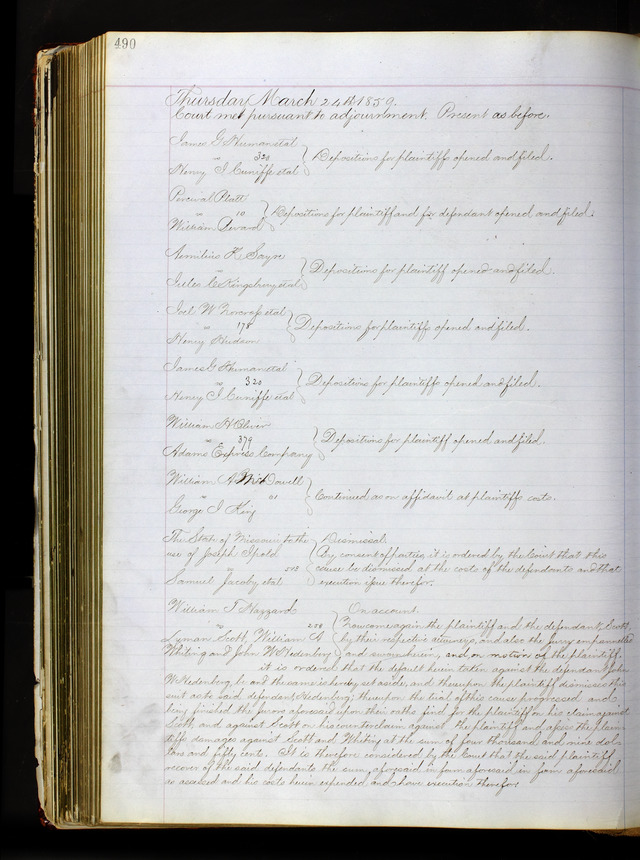 490
Thursday March 24th 1859.
Court met pursuant to adjournment. Present as before.
James G Human et al
vs 320 Depositions for plaintiff opened and filed.
Henry I Cuniffe et al
Percival Platt
vs 10 Depositions for plaintiff and for defendant opened and filed.
William Seward
Aemilius K Sayre
vs Depositions for plaintiff opened and filed.
Giles C Kingsbury et al
Joel W Norcross et al
vs 178 Depositions for plaintiffs opened and filed.
Henry Hudson
James G Human et al
vs 320 Depositions for plaintiffs opened and filed.
Henry I Cuniffe et al
William H Oliver
vs 379 Depositions for plaintiff opened and filed.
Adams Express Company
William A McDowell
vs Continued as on affidavit at plaintiffs costs.
George I King
The State of Missouri to the Dismissal
use of Joseph Ipold By consent of parties, it is ordered by the Court that this
vs cause be dismissed at the costs of the defendants and that
Samuel Jacoby et al execution issue therefor.
William T Hazzard On account
vs 258 Now come again the plaintiff and the defendant, Scott,
Lyman Scott, William A by their respective attorneys, and also the jury empannelled
Whiting and John W Hedenberg and sworn herein, and on motion of the plaintiff,
it is ordered that the default herein taken against the defendant John
W Hedenberg, be and the same is hereby set aside, and thereupon the plaintiff dismisses this
suit as to said defendant, Hedenberg, thereupon the trial of this cause progressed and
being finished the jurors aforesaid upon their oaths find for the plaintiff on his claim against
Scott, and against Scott on his counterclaim against the plaintiff and assess the plain-
tiffs damages against Scott and Whiting at the sum of four thousand and nine dol-
lars and fifty cents. It is therefore considered by the Court that the said plaintiff
recover of the said defendants the sum aforesaid in form aforesaid in form aforesaid
so assessed and his costs herein expended and have execution therefor.